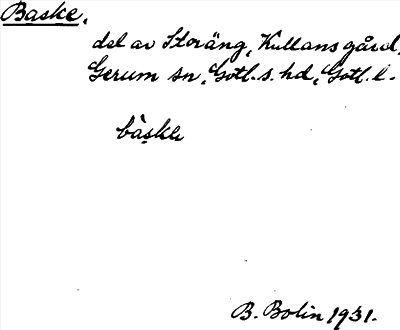 Baske,
del av Storäng, Kullans gård,
Gerum sn, Gotl. s. hd, Gotl. l.
B. Bolin 1931.